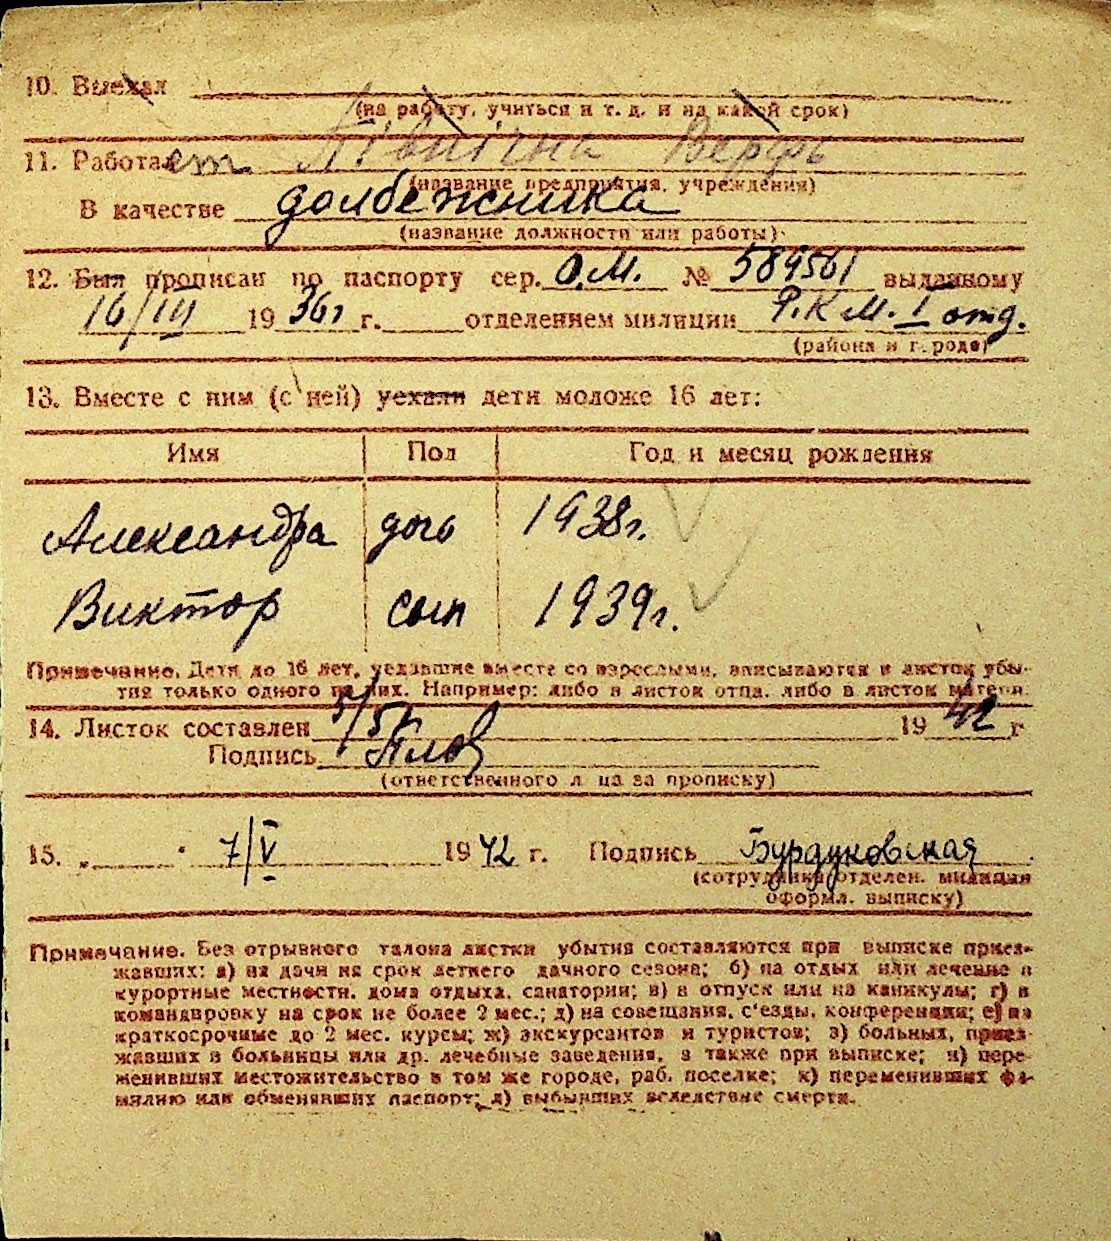 10. Выехал
(на работу, учиться и т. д. и на какой срок)
11. Работает Північна Верфь
(название предприятия, учреждения)
В качестве долбежника
(название должности или работы)
12. Был прописан по паспорту сер. О.М. № 589561 выданному
16/III 1936г г. отделением милиции Р.К.М. I отд.
(района и города)
13. Вместе с ним (с ней) уехали дети моложе 16 лет:
Имя Пол Год и месяц рождения
Александра дочь 1938г.
Виктор сын 1939г.
Примечание. Дети до 16 лет, уехавшие вместе со взрослыми, вписываются в листок убы-
тия только одного из них. Например: либо в листок отца, либо в листок матери.
14. Листок составлен 5/5 1942 г
Подпись
(ответственного лица за прописку)
15. „ " 7/V 1942 г. Подпись Бурдуковская
(сотрудника отделен. милиции
оформл. выписку)
Примечание. Без отрывного талона листки убытия составляются при выписке приез-
жавших: а) на дачи на срок летнего дачного сезона; б) на отдых или лечение в
курортные местности, дома отдыха, санатории; в) в отпуск или на каникулы; г) в
командировку на срок не более 2 мес.; д) на совещания, с'езды, конференции; е) на
краткосрочные до 2 мес. курсы; ж) экскурсантов и туристов; з) больных, приез-
жавших в больницы или др. лечебные заведения, а также при выписке; и) пере-
менивших местожительство в том же городе, раб. поселке; к) переменивших фа-
милию или обменявших паспорт; л) выбывших вследствие смерти.